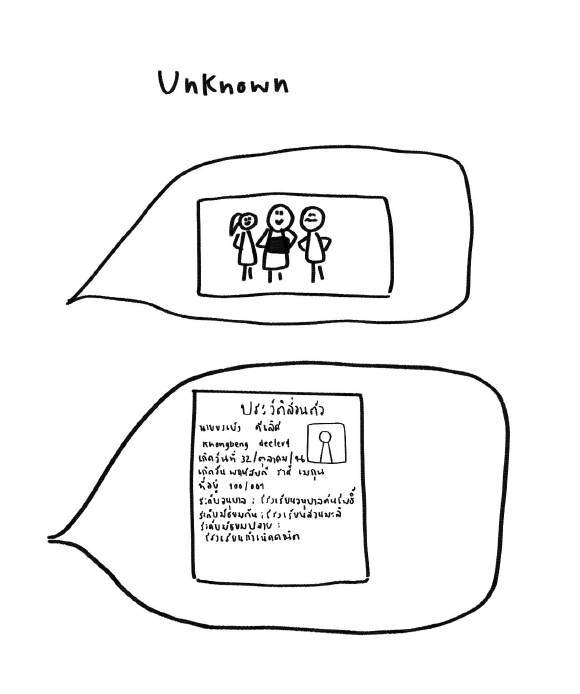 Unknown
ประวัติส่วนตัว
Khongbeng declert
เกิดวันที่ 32/ตุลาคม/
เกิดวัน พฤหัสบดี ราศี เมถุน
ที่อยู่ 100/001
ระดับอนุบาล : โรงเรียนอนุบาลต้นโพธิ์
ระดับมัธยมต้น : โรงเรียนสวนมะลิ
ระดับมัธยมปลาย :
โรงเรียนกำเนิดคณิต